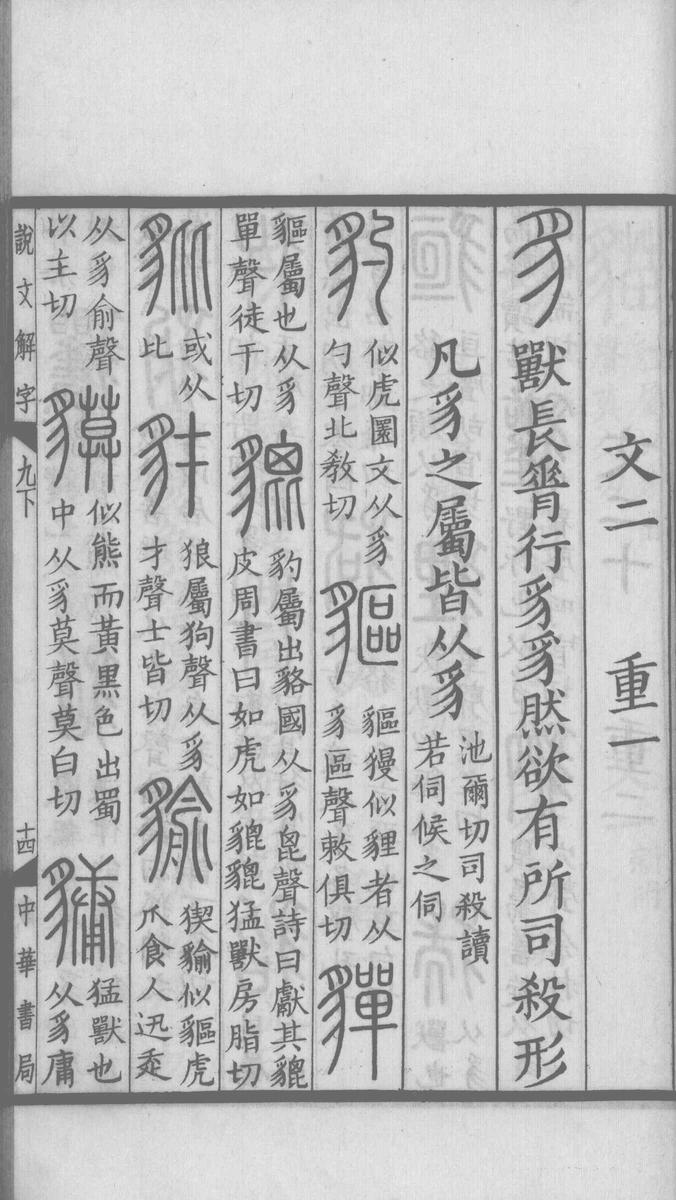 文二　重一
豸獸長脊行豸豸然欲有所司殺形
凡豸之屬皆从豸池爾切司殺讀
若伺候之伺
豹似虎圜文从豸
勺聲北教切
貙貙獌似貍者从
豸區聲敕俱切
貚貙屬也从豸
單聲徒干切
貔豹屬出貉國从豸𣬉聲詩曰獻其貔
皮周書曰如虎如貔貔猛獸房脂切
豼或从
比
豺狼屬狗聲从豸
才聲士皆切
貐猰貐似貙虎
爪食人迅走
从豸俞聲
以主切
貘似熊而黃黑色出蜀
中从豸莫聲莫白切
𧳤猛獸也
从豸庸
說文解字　九下　十四　中華書局